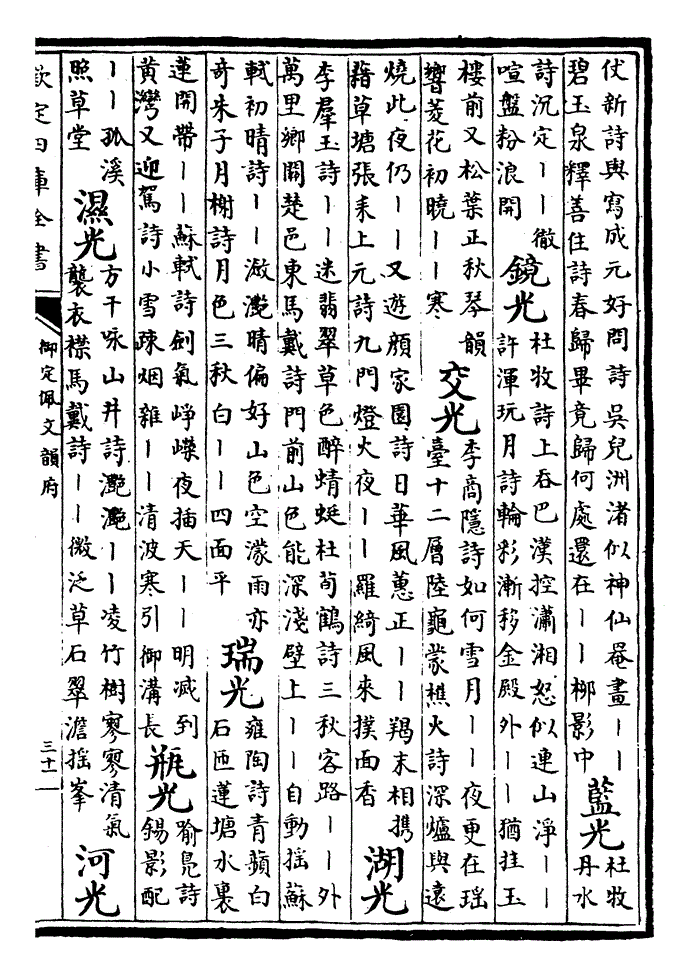 仗新詩與寫成元好問詩吳兒洲渚似神仙罨畫｜｜
碧玉泉釋善住詩春歸畢竟歸何處還在｜｜栁影中
藍光
杜牧
丹水
詩沉定｜｜徹
喧盤粉浪開
鏡光
杜牧詩上吞巴漢控瀟湘怒似連山淨｜｜
許渾玩月詩輪影漸移金殿外｜｜猶挂玉
樓前又松葉正秋琴韻
響菱花初曉｜｜寒
交光
李商隱詩如何雪月｜｜夜更在瑶
臺十二層陸龜蒙樵火詩深爐與遠
燒此夜仍｜｜又遊顔家園詩日華風蕙正｜｜羯末相携
藉草塘張耒上元詩九門燈火夜｜｜羅綺風來撲面香
湖光
李羣玉詩｜｜迷翡翠草色醉蜻蜓杜荀鶴詩三秋客路｜｜外
萬里鄉關楚邑東馬戴詩門前山色能深淺壁上｜｜自動揺蘇
軾初晴詩｜｜瀲灔晴偏好山色空濛雨亦
奇朱子月榭詩月色三秋白｜｜四面平
瑞光
雍陶詩青蘋白
石匝蓮塘水裏
蓮開帶｜｜蘇軾詩劍氣崢嶸夜插天｜｜明滅到
黄灣又迎駕詩小雪疎烟雜｜｜清波寒引御溝長
瓶光
喻鳬詩
錫影配
｜｜孤溪
照草堂
濕光
方干咏山井詩灔灔｜｜凌竹樹寥寥清氣
襲衣襟馬戴詩｜｜微泛草石翠澹揺峯
河光
欽定四庫全書
御定佩文韻府
三十一